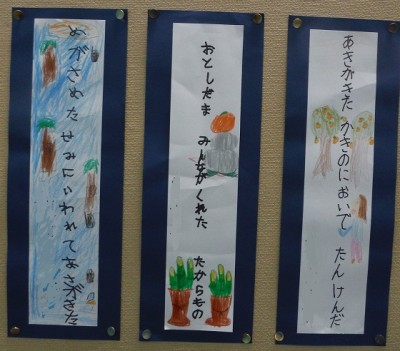 あきがきた かきのにおいで たんけんだ
おとしだま みんながくれた たからもの
めがさめた せみにいわれて あさがきた